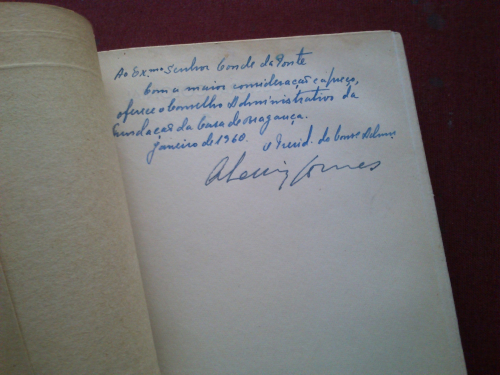 Ao Ex.mo Senhor Conde da Ponte
Com a maior consideração e apreço,
oferece o Conselho Administrativo da
Fundação da Casa de Bragança.
Janeiro de 1960. O Presid. do Cons. Admvo
Gomes